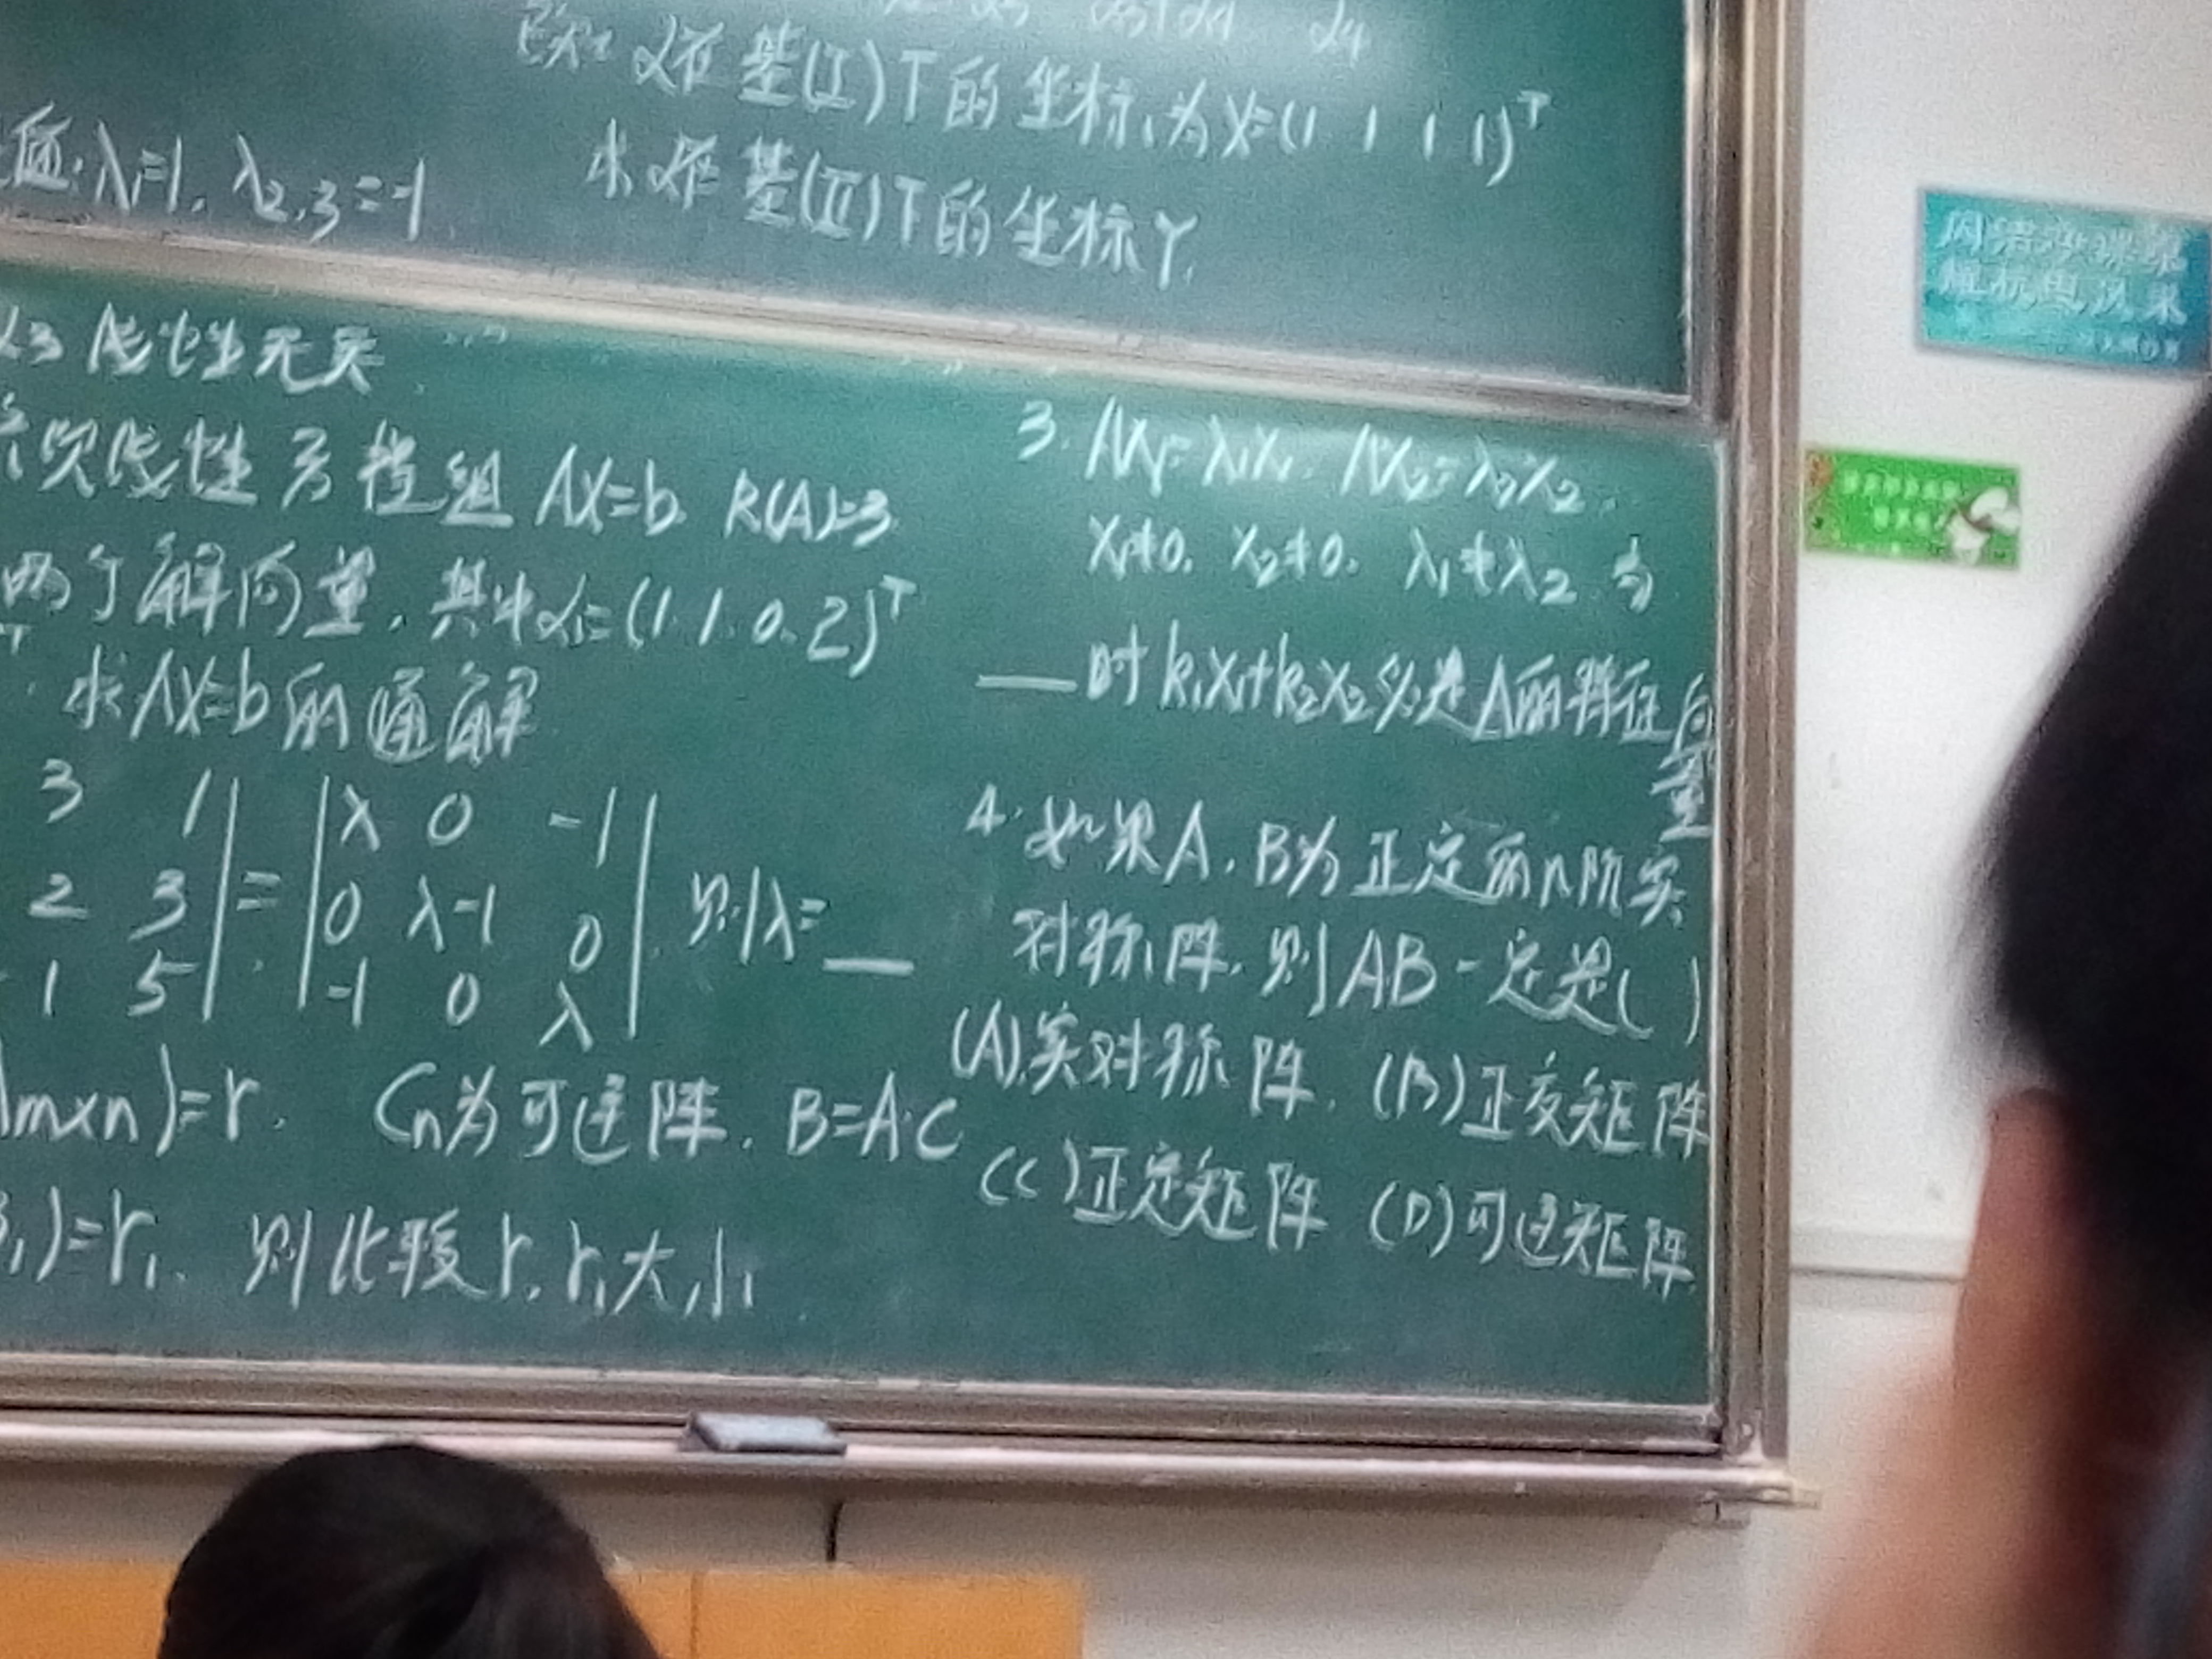 α在基(I)下的坐标为X=(1 1 1 1)ᵀ
求α在基(II)下的坐标Y.
值: λ₁=1, λ₂,₃=-1
线性无关
次线性方程组 AX=b R(A)=3
两个解向量, 其中α₁=(1, 1, 0, 2)ᵀ
求AX=b的通解
3 1 | = | λ 0 -1 |
2 3 | = | 0 λ-1 0 | 则λ=__
1 5 | = | -1 0 λ |
m×n)=r. Cn为可逆阵, B=A·C
)=r₁, 则比较r, r₁大小
3. AX₁=λ₁X₁, AX₂=λ₂X₂,
X₁≠0, X₂≠0, λ₁≠λ₂
__时k₁X₁+k₂X₂必是A的特征向量
4. 如果A, B为正定的n阶实
对称阵, 则AB一定是( )
(A)实对称阵, (B)正交矩阵
(C)正定矩阵 (D)可逆矩阵